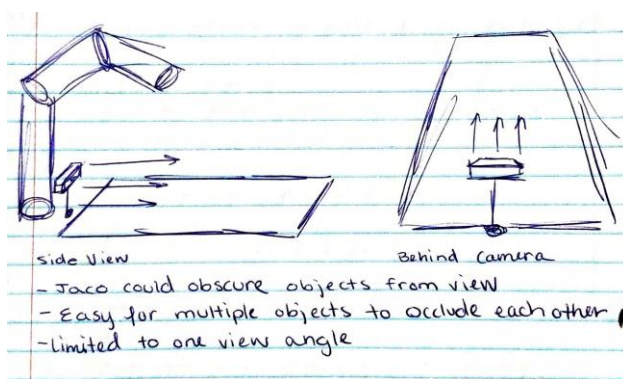 Side View
Behind Camera
- Jaco could obscure objects from view
- Easy for multiple objects to occlude each other
- Limited to one view angle